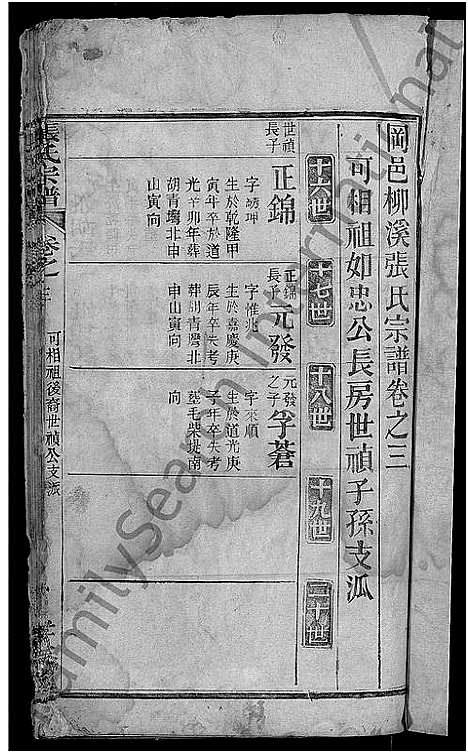 岡邑柳溪張氏宗譜卷之三
可相祖如忠公長房世禎子孫支派
十六世
十七世
十八世
十九世
二十世
世禎長子
正錦
字綉坤
生於乾隆甲
寅年卒於道
光辛卯年葬
胡青塆北申
山寅向
正錦長子
元發
字惟兆
生於嘉慶庚
辰年卒失考
葬胡青灣北
申山寅向
元發之子
孚蒼
字來順
生於道光庚
子年卒失考
葬毛柴垅南
向
張氏宗譜
卷之三
可相祖後裔世禎公支派
FamilySearch International